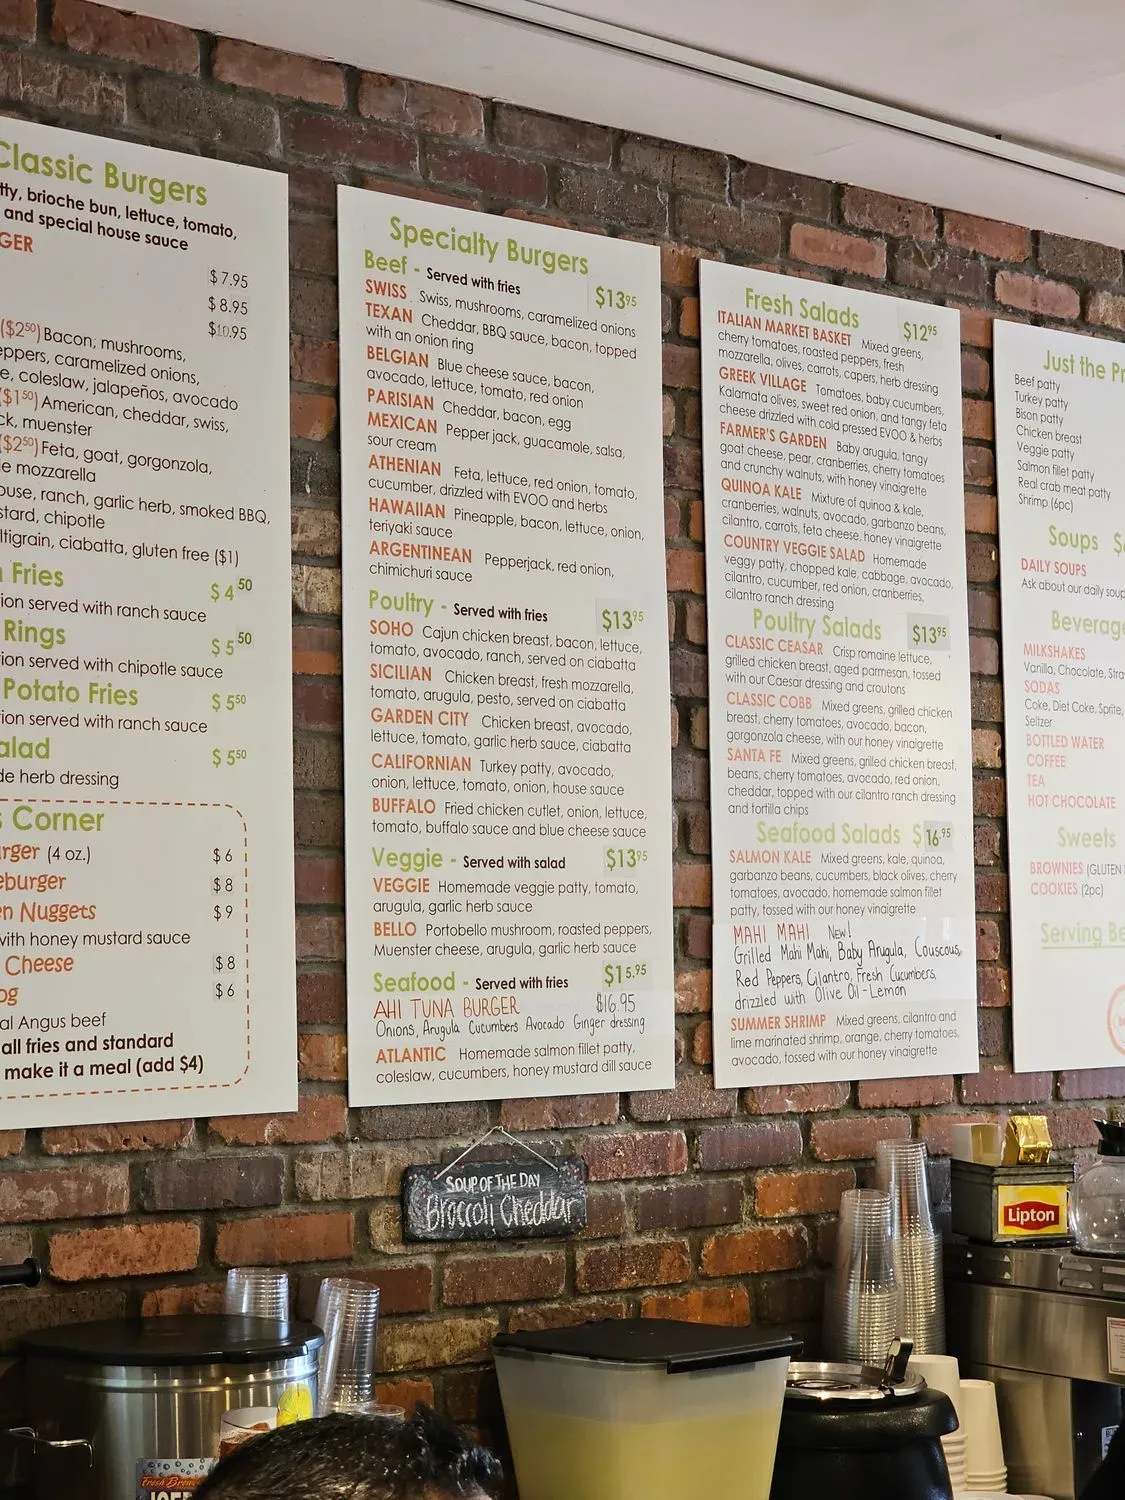 Classic Burgers
tty, brioche bun, lettuce, tomato,
and special house sauce
GER
$7.95
$8.95
$10.95
($2⁵⁰) Bacon, mushrooms,
eppers, caramelized onions,
e, coleslaw, jalapeños, avocado
($1⁵⁰) American, cheddar, swiss,
ck, muenster
($2⁵⁰) Feta, goat, gorgonzola,
le mozzarella
ouse, ranch, garlic herb, smoked BBQ,
stard, chipotle
ltigrain, ciabatta, gluten free ($1)
n Fries $4⁵⁰
ion served with ranch sauce
Rings $5⁵⁰
tion served with chipotle sauce
Potato Fries $5⁵⁰
tion served with ranch sauce
alad $5⁵⁰
de herb dressing
s Corner
rger (4 oz.) $6
eburger $8
en Nuggets $9
with honey mustard sauce
Cheese $8
og $6
al Angus beef
all fries and standard
make it a meal (add $4)
Specialty Burgers
Beef - Served with fries $13⁹⁵
SWISS Swiss, mushrooms, caramelized onions
TEXAN Cheddar, BBQ sauce, bacon, topped
with an onion ring
BELGIAN Blue cheese sauce, bacon,
avocado, lettuce, tomato, red onion
PARISIAN Cheddar, bacon, egg
MEXICAN Pepper jack, guacamole, salsa,
sour cream
ATHENIAN Feta, lettuce, red onion, tomato,
cucumber, drizzled with EVOO and herbs
HAWAIIAN Pineapple, bacon, lettuce, onion,
teriyaki sauce
ARGENTINEAN Pepperjack, red onion,
chimichuri sauce
Poultry - Served with fries $13⁹⁵
SOHO Cajun chicken breast, bacon, lettuce,
tomato, avocado, ranch, served on ciabatta
SICILIAN Chicken breast, fresh mozzarella,
tomato, arugula, pesto, served on ciabatta
GARDEN CITY Chicken breast, avocado,
lettuce, tomato, garlic herb sauce, ciabatta
CALIFORNIAN Turkey patty, avocado,
onion, lettuce, tomato, onion, house sauce
BUFFALO Fried chicken cutlet, onion, lettuce,
tomato, buffalo sauce and blue cheese sauce
Veggie - Served with salad $13⁹⁵
VEGGIE Homemade veggie patty, tomato,
arugula, garlic herb sauce
BELLO Portobello mushroom, roasted peppers,
Muenster cheese, arugula, garlic herb sauce
Seafood - Served with fries $15.95
AHI TUNA BURGER $16.95
Onions, Arugula Cucumbers Avocado Ginger dressing
ATLANTIC Homemade salmon fillet patty,
coleslaw, cucumbers, honey mustard dill sauce
Fresh Salads $12⁹⁵
ITALIAN MARKET BASKET Mixed greens,
cherry tomatoes, roasted peppers, fresh
mozzarella, olives, carrots, capers, herb dressing
GREEK VILLAGE Tomatoes, baby cucumbers,
Kalamata olives, sweet red onion, and tangy feta
cheese drizzled with cold pressed EVOO & herbs
FARMER'S GARDEN Baby arugula, tangy
goat cheese, pear, cranberries, cherry tomatoes
and crunchy walnuts, with honey vinaigrette
QUINOA KALE Mixture of quinoa & kale,
cranberries, walnuts, avocado, garbanzo beans,
cilantro, carrots, feta cheese, honey vinaigrette
COUNTRY VEGGIE SALAD Homemade
veggy patty, chopped kale, cabbage, avocado,
cilantro, cucumber, red onion, cranberries,
cilantro ranch dressing
Poultry Salads $13⁹⁵
CLASSIC CEASAR Crisp romaine lettuce,
grilled chicken breast, aged parmesan, tossed
with our Caesar dressing and croutons
CLASSIC COBB Mixed greens, grilled chicken
breast, cherry tomatoes, avocado, bacon,
gorgonzola cheese, with our honey vinaigrette
SANTA FE Mixed greens, grilled chicken breast,
beans, cherry tomatoes, avocado, red onion,
cheddar, topped with our cilantro ranch dressing
and tortilla chips
Seafood Salads $16.95
SALMON KALE Mixed greens, kale, quinoa,
garbanzo beans, cucumbers, black olives, cherry
tomatoes, avocado, homemade salmon fillet
patty, tossed with our honey vinaigrette
MAHI MAHI New!
Grilled Mahi Mahi, Baby Arugula, Couscous,
Red Peppers, Cilantro, Fresh Cucumbers,
drizzled with Olive Oil-Lemon
SUMMER SHRIMP Mixed greens, cilantro and
lime marinated shrimp, orange, cherry tomatoes,
avocado, tossed with our honey vinaigrette
Just the Pr
Beef patty
Turkey patty
Bison patty
Chicken breast
Veggie patty
Salmon fillet patty
Real crab meat patty
Shrimp (6pc)
Soups $
DAILY SOUPS
Ask about our daily soup
Beverage
MILKSHAKES
Vanilla, Chocolate, Stra
SODAS
Coke, Diet Coke, Sprite,
Seltzer
BOTTLED WATER
COFFEE
TEA
HOT CHOCOLATE
Sweets
BROWNIES (GLUTEN
COOKIES (2pc)
Serving Be
SOUP OF THE DAY
Broccoli Cheddar
Lipton
Fresh Brewed
ICED